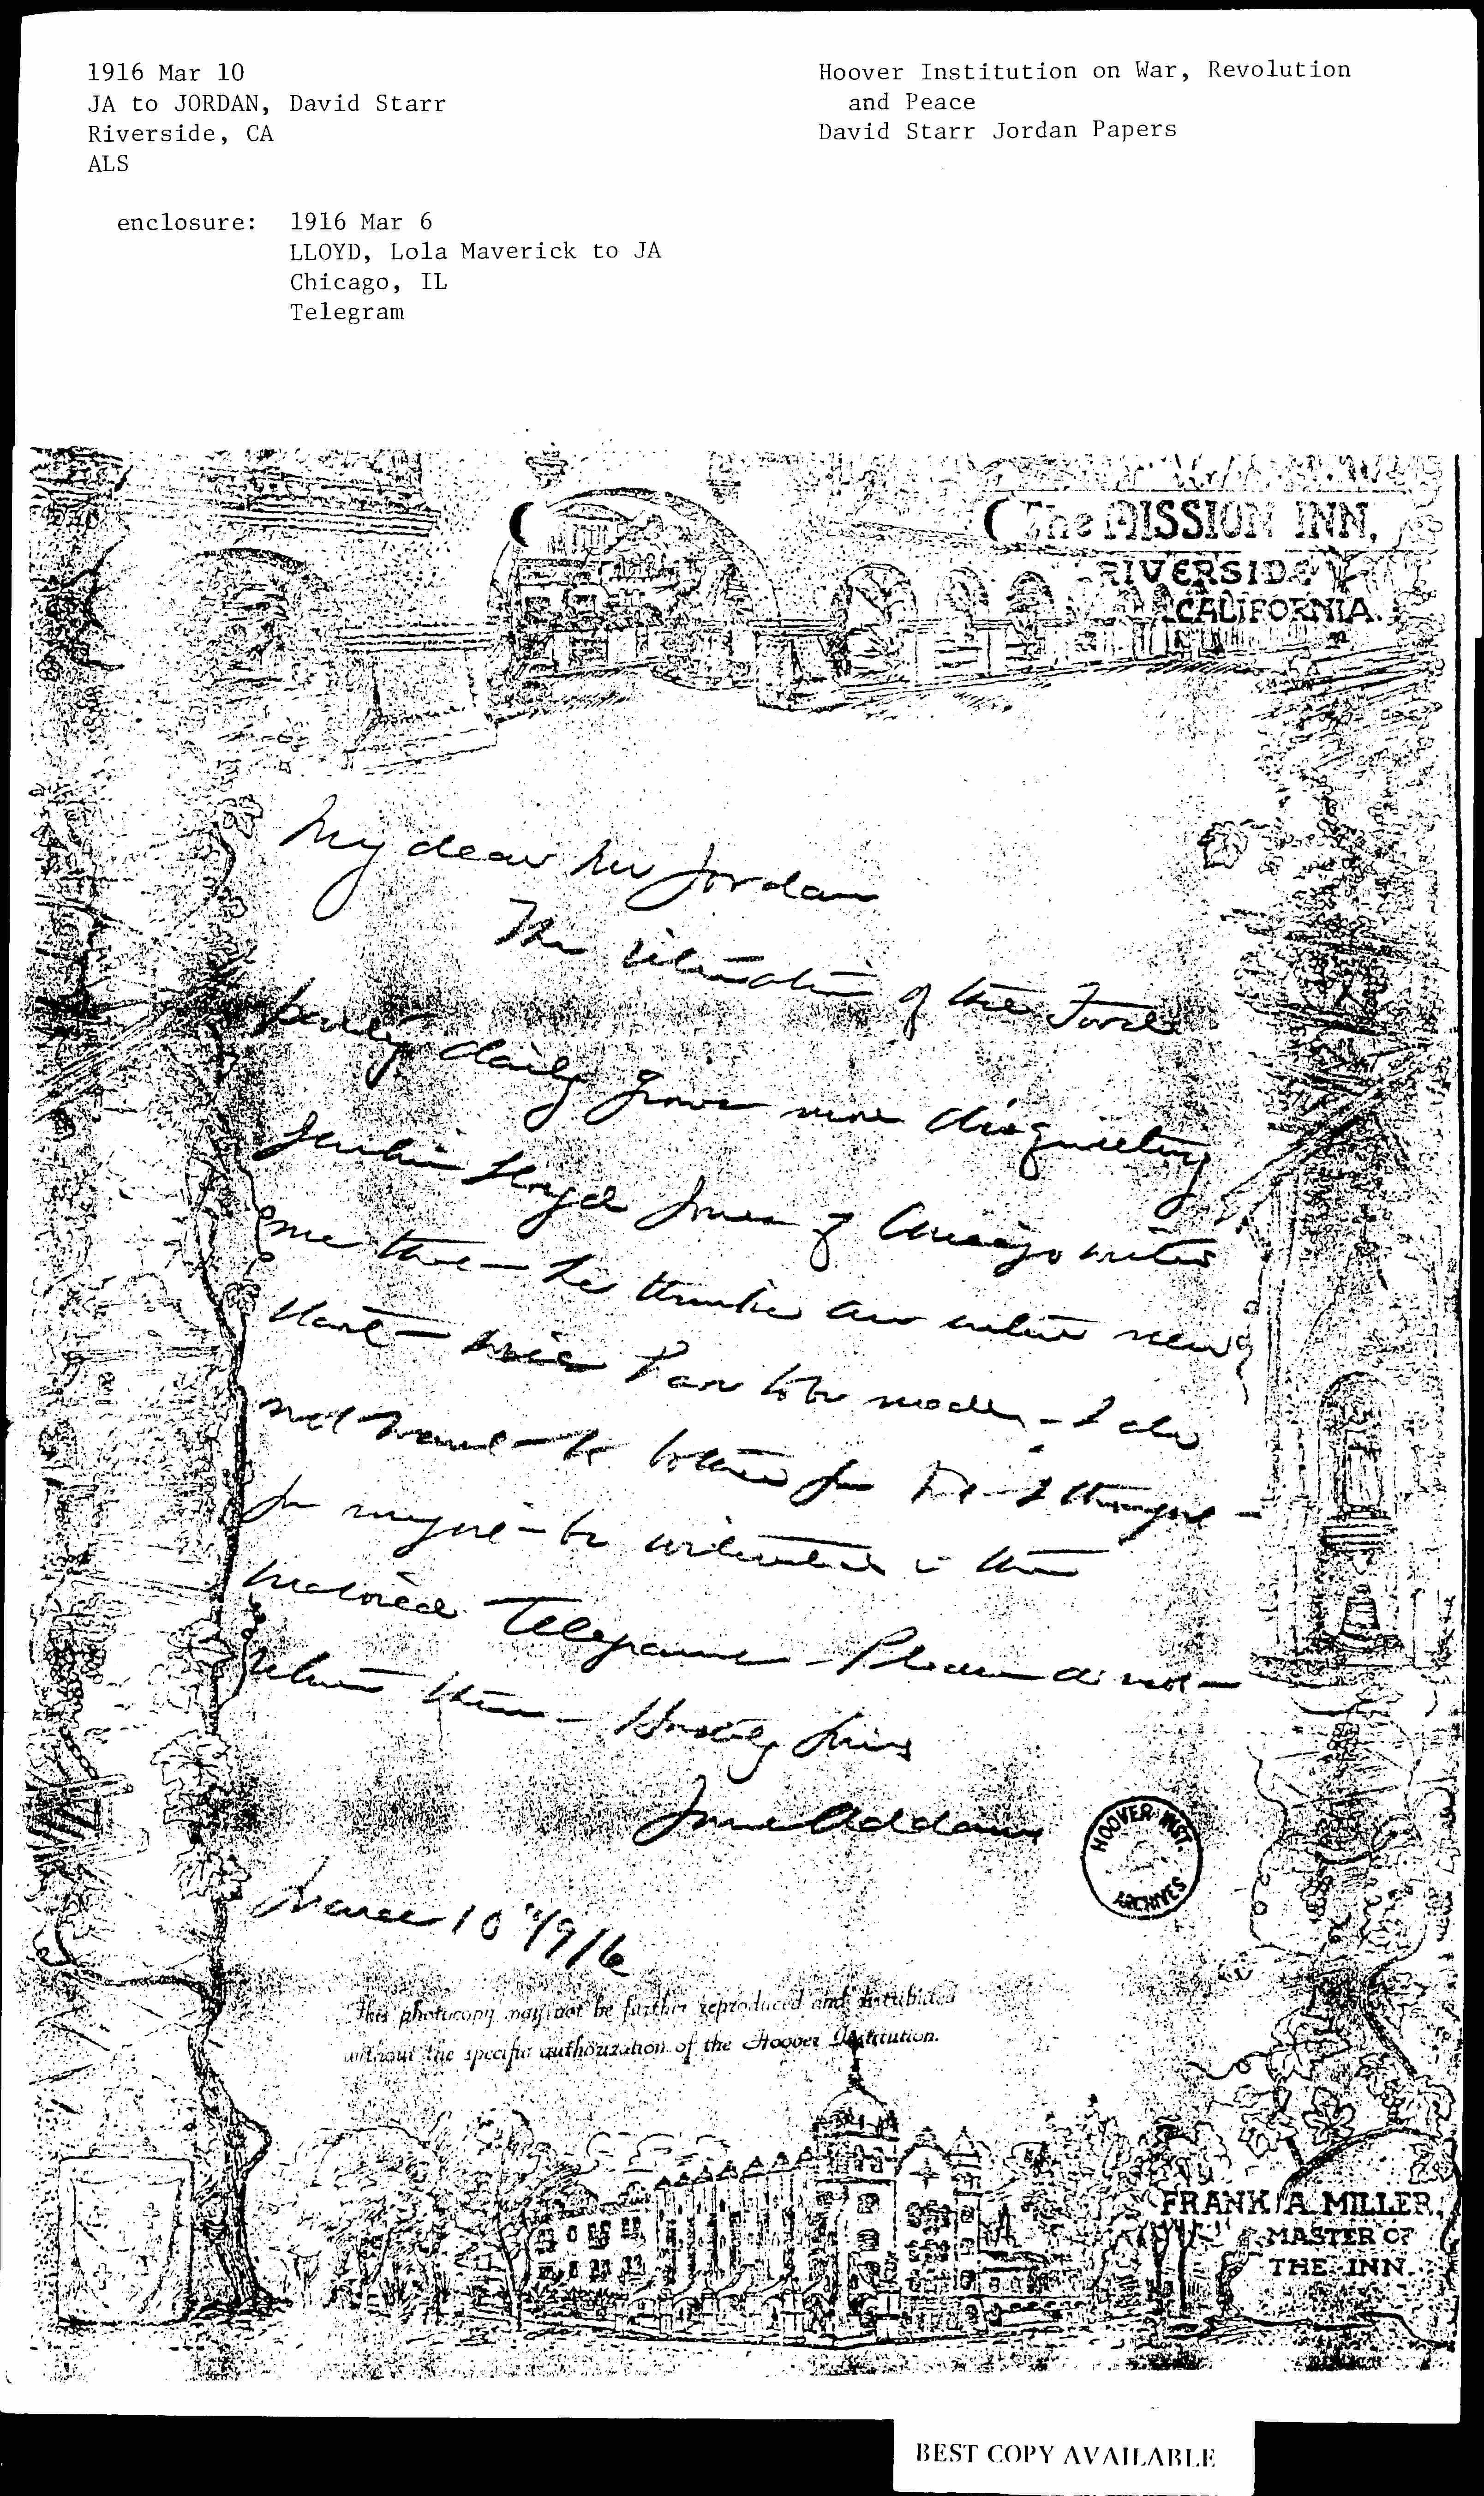 1916 Mar 10
JA to JORDAN, David Starr
Riverside, CA
ALS
Hoover Institution on War, Revolution
and Peace
David Starr Jordan Papers
enclosure: 1916 Mar 6
LLOYD, Lola Maverick to JA
Chicago, IL
Telegram
The MISSION INN,
RIVERSIDE
CALIFORNIA.
My dear Mr Jordan
The situation of the Ford
party daily grows more disquieting
Jenkin Lloyd Jones of Chicago writes
me that he thinks an entire new
start will have to be made - I do
not want to bother you but I thought
you might be interested in the
enclosed telegrams - Please do not
return them - Hastily yours
Jane Addams
HOOVER INST.
ARCHIVES
March 10" 1916
This photocopy may not be further reproduced and distributed
without the specific authorization of the Hoover Institution.
FRANK A. MILLER,
MASTER OF
THE INN.
BEST COPY AVAILABLE